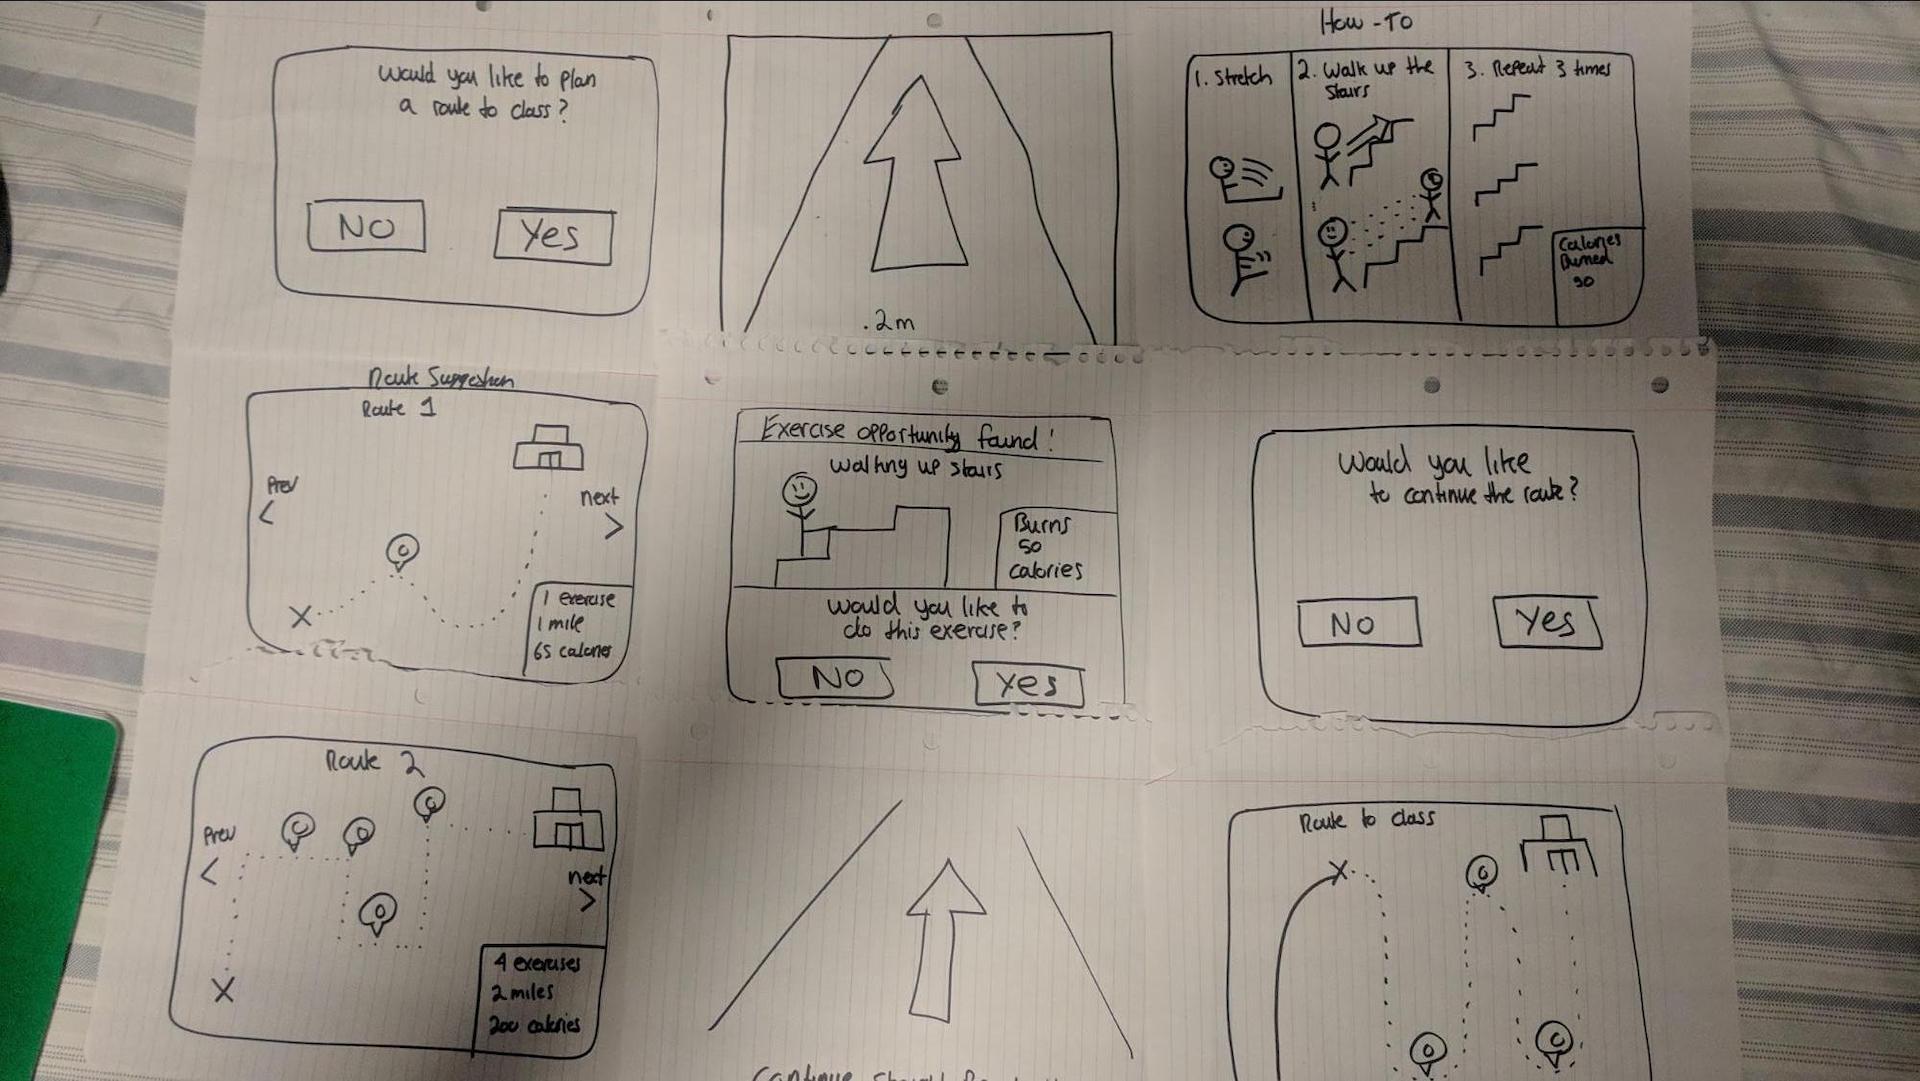 Would you like to plan
a route to class?
No
Yes
.2m
How-To
1. Stretch
2. Walk up the
Stairs
3. Repeat 3 times
Calories
Burned
90
Route
Route 1
Prev
<
next
>
1 exercise
1 mile
65 calories
Exercise opportunity found!
walking up stairs
Burns
50
calories
Would you like to
do this exercise?
No
Yes
Would you like
to continue the route?
No
Yes
Route 2
Prev
<
next
>
4 exercises
2 miles
200 calories
Continue
Route to class